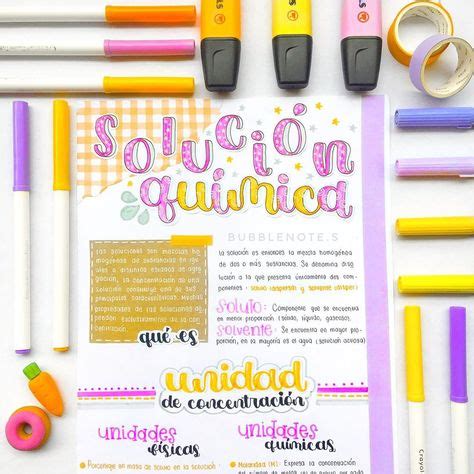 SOLUCIÓN
química
BUBBLENOTE.S
Las soluciones son mezclas ho
mogéneas de sustancias en igua
les o distintos estados de agre
gación. La concentración de una
solución constituye una de sus
principales características. Muchas
propiedades de las soluciones de
penden exclusivamente de la con
centración.
qué es
la solución es entonces la mezcla homogénea
de dos o más sustancias. Se denomina diso
lución a la que presenta únicamente dos com
ponentes: soluto (disperso) y solvente
soluto: Componente que se encuentra
en menor proporción (sólido, líquido, gaseoso).
solvente: Se encuentra en mayor pro
porción, en la mayoría es el agua (solución acuosa)
unidad
de concentración
unidades
físicas
unidades
químicas
• Porcentaje en masa de soluto en la solución
• Molaridad (M): Expresa la concentración
Crayola